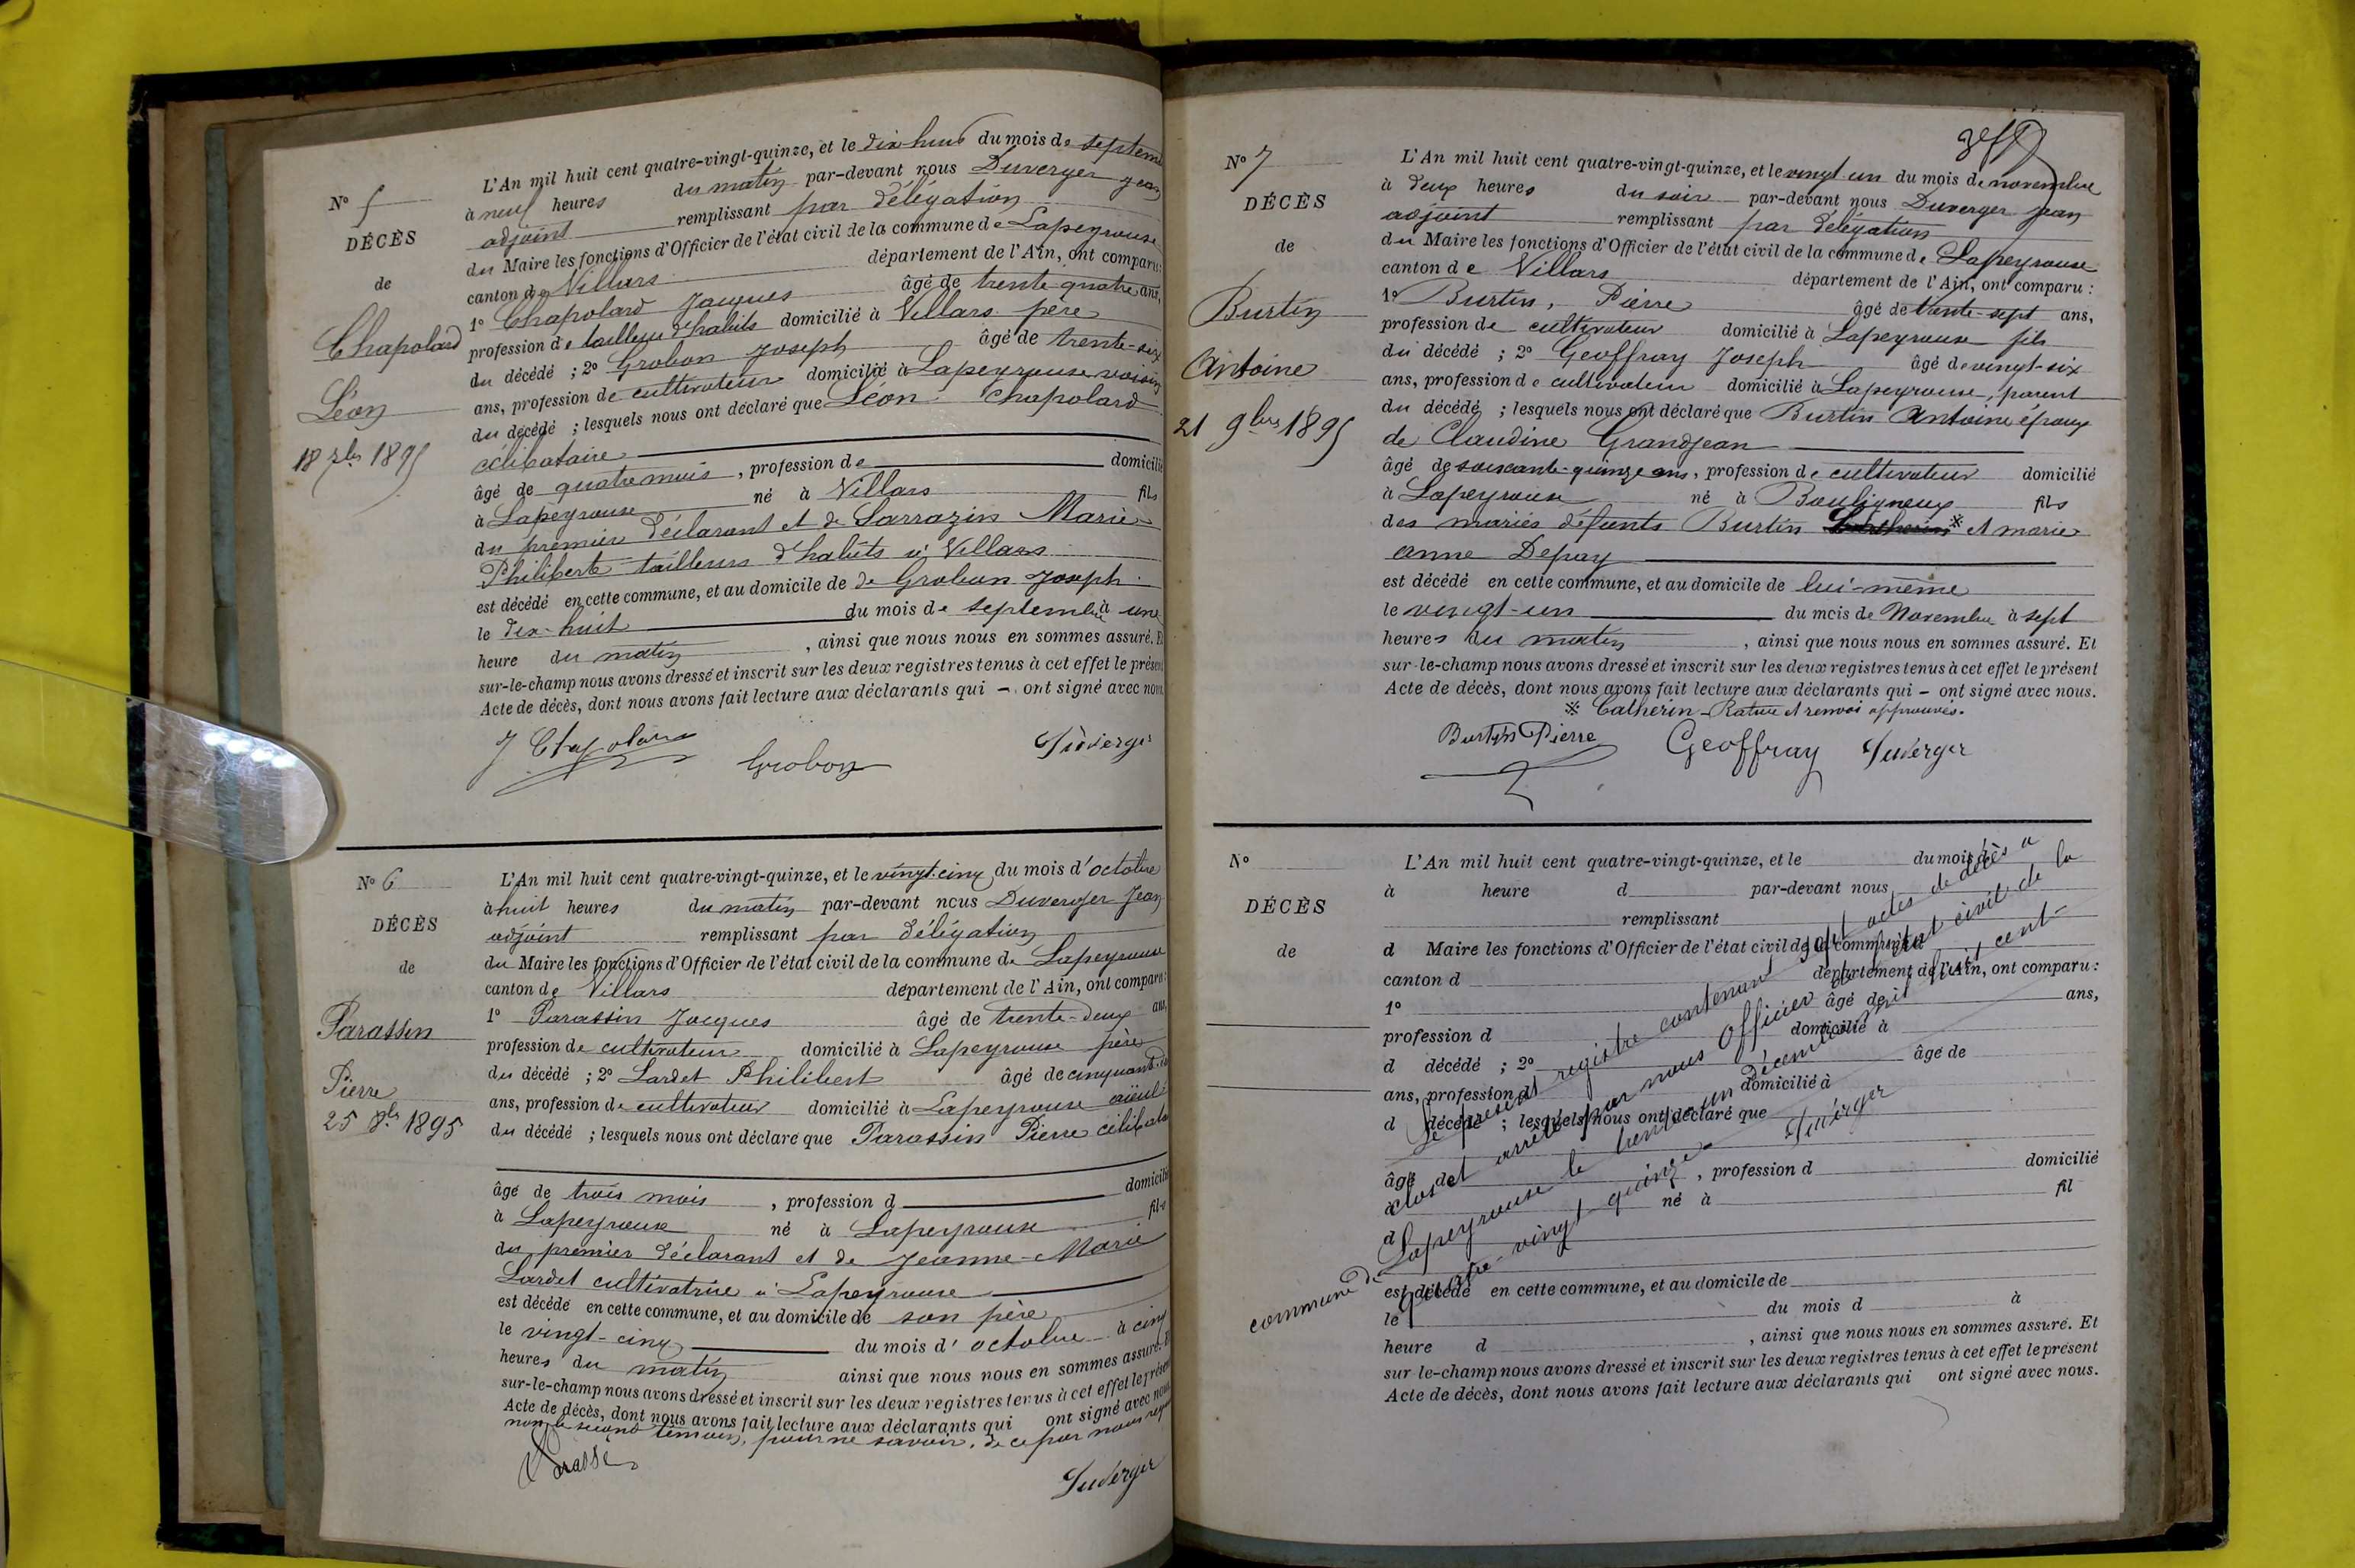 N° 5
DÉCÈS
de
Chapolard
Léon
18 7bre 1895
L'An mil huit cent quatre-vingt-quinze, et le dix-huit du mois de septem
à neuf heures du matin par-devant nous Duverger Jean
adjoint remplissant par délégation
du Maire les fonctions d'Officier de l'état civil de la commune de Lapeyrouse
canton de Villars département de l'Ain, ont comparu:
1° Chapolard Jacques âgé de trente quatre ans,
profession de tailleur d'habits domicilié à Villars père
du décédé ; 2° Grobon Joseph âgé de trente-six
ans, profession de cultivateur domicilié à Lapeyrouse voisin
du décédé ; lesquels nous ont déclaré que Léon Chapolard
célibataire
âgé de quatre mois , profession de domicilié
à Lapeyrouse né à Villars fils
du premier déclarant et de Sarrazin Marie-
Philiberte tailleurs d'habits à Villars
est décédé en cette commune, et au domicile de de Grobon Joseph
le dix-huit du mois de septembre à une
heure du matin , ainsi que nous nous en sommes assuré. Et
sur-le-champ nous avons dressé et inscrit sur les deux registres tenus à cet effet le présent
Acte de décès, dont nous avons fait lecture aux déclarants qui – ont signé avec nous
J Chapolard Grobon Duverger
N° 6
DÉCÈS
de
Parassin
Pierre
25 8bre 1895
L'An mil huit cent quatre-vingt-quinze, et le vingt-cinq du mois d'octobre
à huit heures du matin par-devant nous Duverger Jean
adjoint remplissant par délégation
du Maire les fonctions d'Officier de l'état civil de la commune de Lapeyrouse
canton de Villars département de l'Ain, ont comparu:
1° Parassin Jacques âgé de trente-deux ans,
profession de cultivateur domicilié à Lapeyrouse père
du décédé ; 2° Lardet Philibert âgé de cinquante
ans, profession de cultivateur domicilié à Lapeyrouse aïeul
du décédé ; lesquels nous ont déclaré que Parassin Pierre célibata
âgé de trois mois , profession d domicilié
à Lapeyrouse né à Lapeyrouse fils
du premier déclarant et de Jeanne-Marie
Lardet cultivatrice à Lapeyrouse
est décédé en cette commune, et au domicile de son père
le vingt-cinq du mois d'octobre à cinq
heures du matin ainsi que nous nous en sommes assuré. Et
sur-le-champ nous avons dressé et inscrit sur les deux registres tenus à cet effet le présent
Acte de décès, dont nous avons fait lecture aux déclarants qui ont signé avec nous
non le second témoin, pour ne savoir, de ce par nous requis
Duverger
N° 7
DÉCÈS
de
Burtin
Antoine
21 9bre 1895
L'An mil huit cent quatre-vingt-quinze, et le vingt un du mois de novembre
à deux heures du soir par-devant nous Duverger Jean
adjoint remplissant par délégation
du Maire les fonctions d'Officier de l'état civil de la commune de Lapeyrouse
canton de Villars département de l'Ain, ont comparu :
1° Burtin, Pierre âgé de trente-sept ans,
profession de cultivateur domicilié à Lapeyrouse fils
du décédé ; 2° Geoffray Joseph âgé de vingt-six
ans, profession de cultivateur domicilié à Lapeyrouse, parent
du décédé ; lesquels nous ont déclaré que Burtin Antoine époux
de Claudine Grandjean
âgé de soixante-quinze ans, profession de cultivateur domicilié
à Lapeyrouse né à Bouligneux fils
des mariés défunts Burtin ※ et marie
anne Depay
est décédé en cette commune, et au domicile de lui-même
le vingt-un du mois de Novembre à sept
heures du matin , ainsi que nous nous en sommes assuré. Et
sur-le-champ nous avons dressé et inscrit sur les deux registres tenus à cet effet le présent
Acte de décès, dont nous avons fait lecture aux déclarants qui – ont signé avec nous.
※ Catherin – Rature et renvoi approuvés.
Burtin Pierre Geoffray Duverger
N°
DÉCÈS
de
L'An mil huit cent quatre-vingt-quinze, et le du mois d
à heure d par-devant nous
remplissant
d Maire les fonctions d'Officier de l'état civil de la commune d
canton d département de l'Ain, ont comparu :
1° âgé de ans,
profession d domicilié à
d décédé ; 2° âgé de
ans, profession d domicilié à
d décédé ; lesquels nous ont déclaré que
âgé de , profession d domicilié
à né à fil
d
est décédé en cette commune, et au domicile de
le du mois d à
heure d , ainsi que nous nous en sommes assuré. Et
sur-le-champ nous avons dressé et inscrit sur les deux registres tenus à cet effet le présent
Acte de décès, dont nous avons fait lecture aux déclarants qui ont signé avec nous.
Le présent registre contenant sept actes de décès a
clos et arrêté par nous Officier de l'état civil de la
commune de Lapeyrouse le trente-un Décembre mil huit cent-
quatre-vingt-quinze.
Duverger